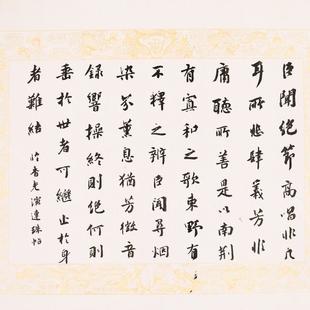 臣聞絕節高唱非凡
耳所悲肆義芳非
庸聽所善是以南荊
有寡和之歌東野有
不釋之辯臣聞尋烟
染芬薰息猶芳徵音
錄響操終則絕何則
垂於世者可繼止於身
者難結 臨香光演連珠帖